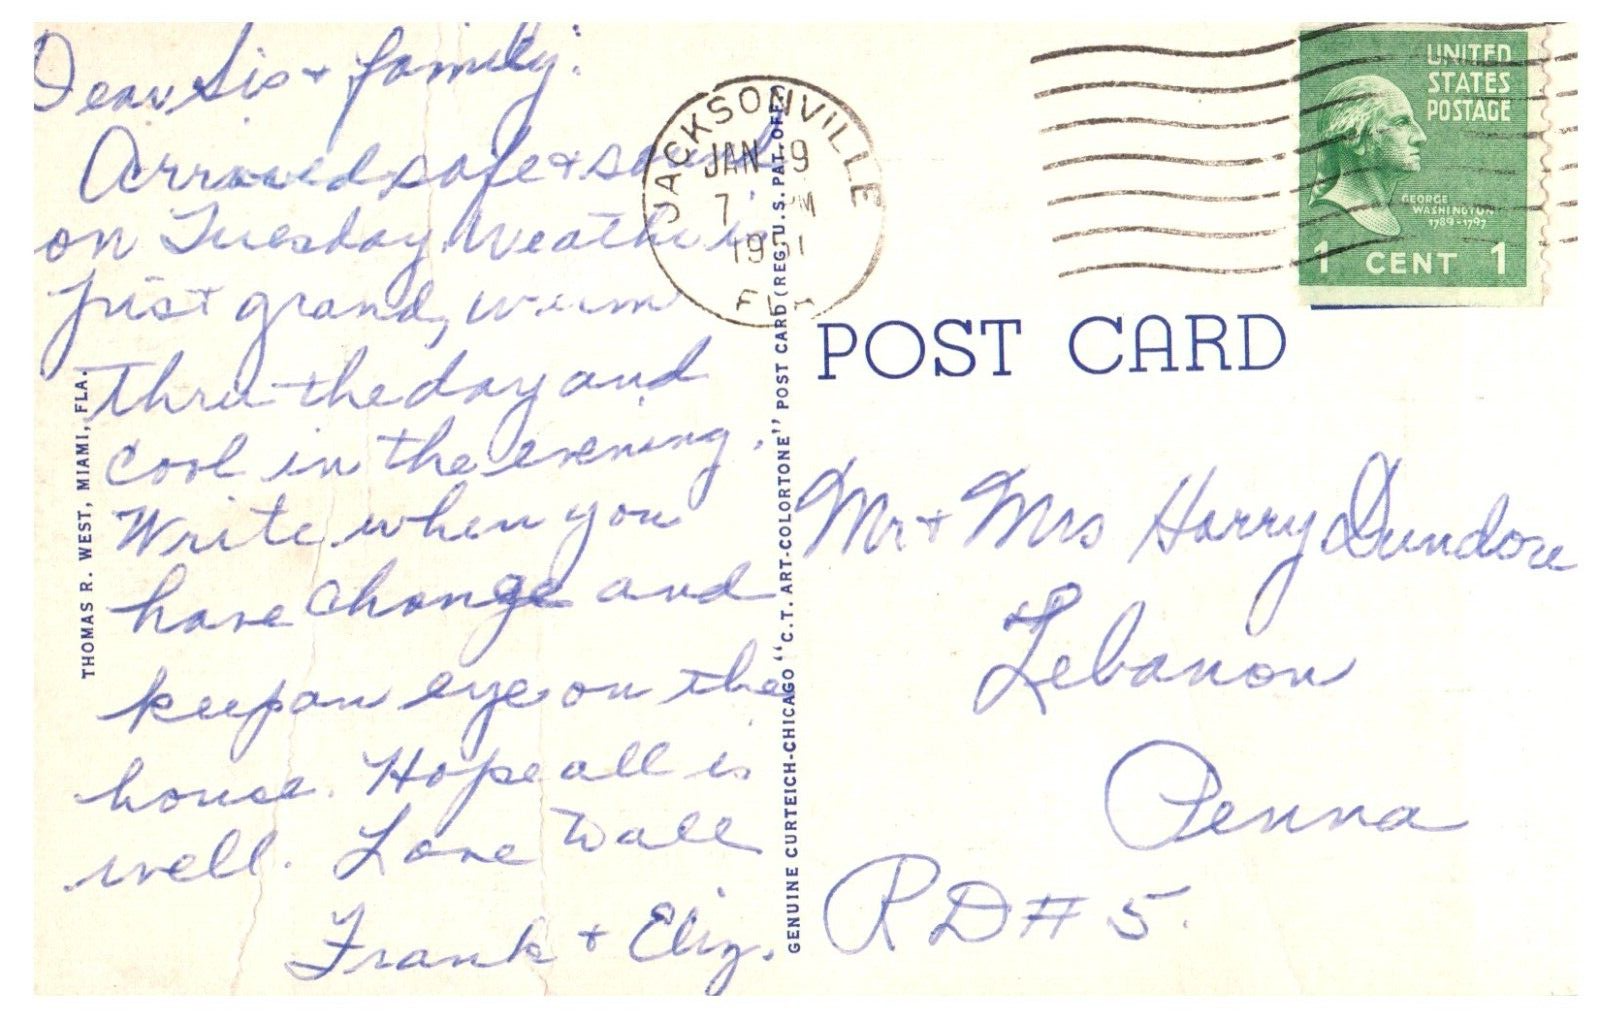 Dear Sis + family:
Arrived safe + sound
on Tuesday. Weather is
just grand, warm
thru the day and
cool in the evening.
Write when you
have change and
keep an eye on the
house. Hope all is
well. Love to all
Frank + Eliz.
THOMAS R. WEST, MIAMI, FLA.
GENUINE CURTEICH-CHICAGO "C.T. ART-COLORTONE" POST CARD (REG. U.S. PAT. OFF.)
JACKSONVILLE
JAN 9
7 PM
1951
FLA
UNITED
STATES
POSTAGE
GEORGE
WASHINGTON
1789-1797
1 CENT 1
POST CARD
Mr + Mrs Harry Dundore
Lebanon
Penna
RD # 5.